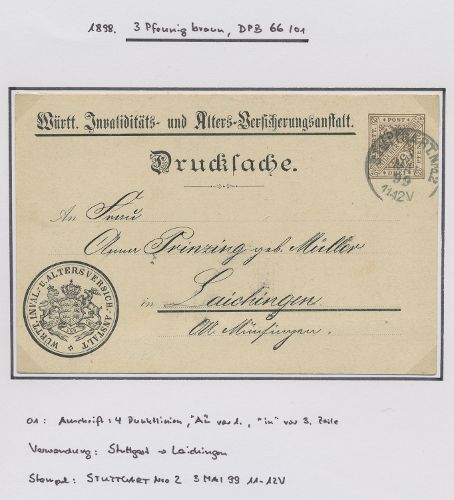 1898. 3 Pfennig braun, DPB 66/01
Württ. Invaliditäts- und Alters-Versicherungsanstalt.
POST
Drucksache.
STUTTGART No.2
99
11-12V
An Frau
Anna Prinzing geb. Müller
in Laichingen
OA. Münsingen.
WÜRTT. INVAL.- U. ALTERSVERSICH.-ANSTALT
01: Anschrift: 4 Punktlinien, "An" vor 1., "in" vor 3. Zeile
Verwendung: Stuttgart → Laichingen
Stempel: STUTTGART No 2 3 MAI 99 11-12V